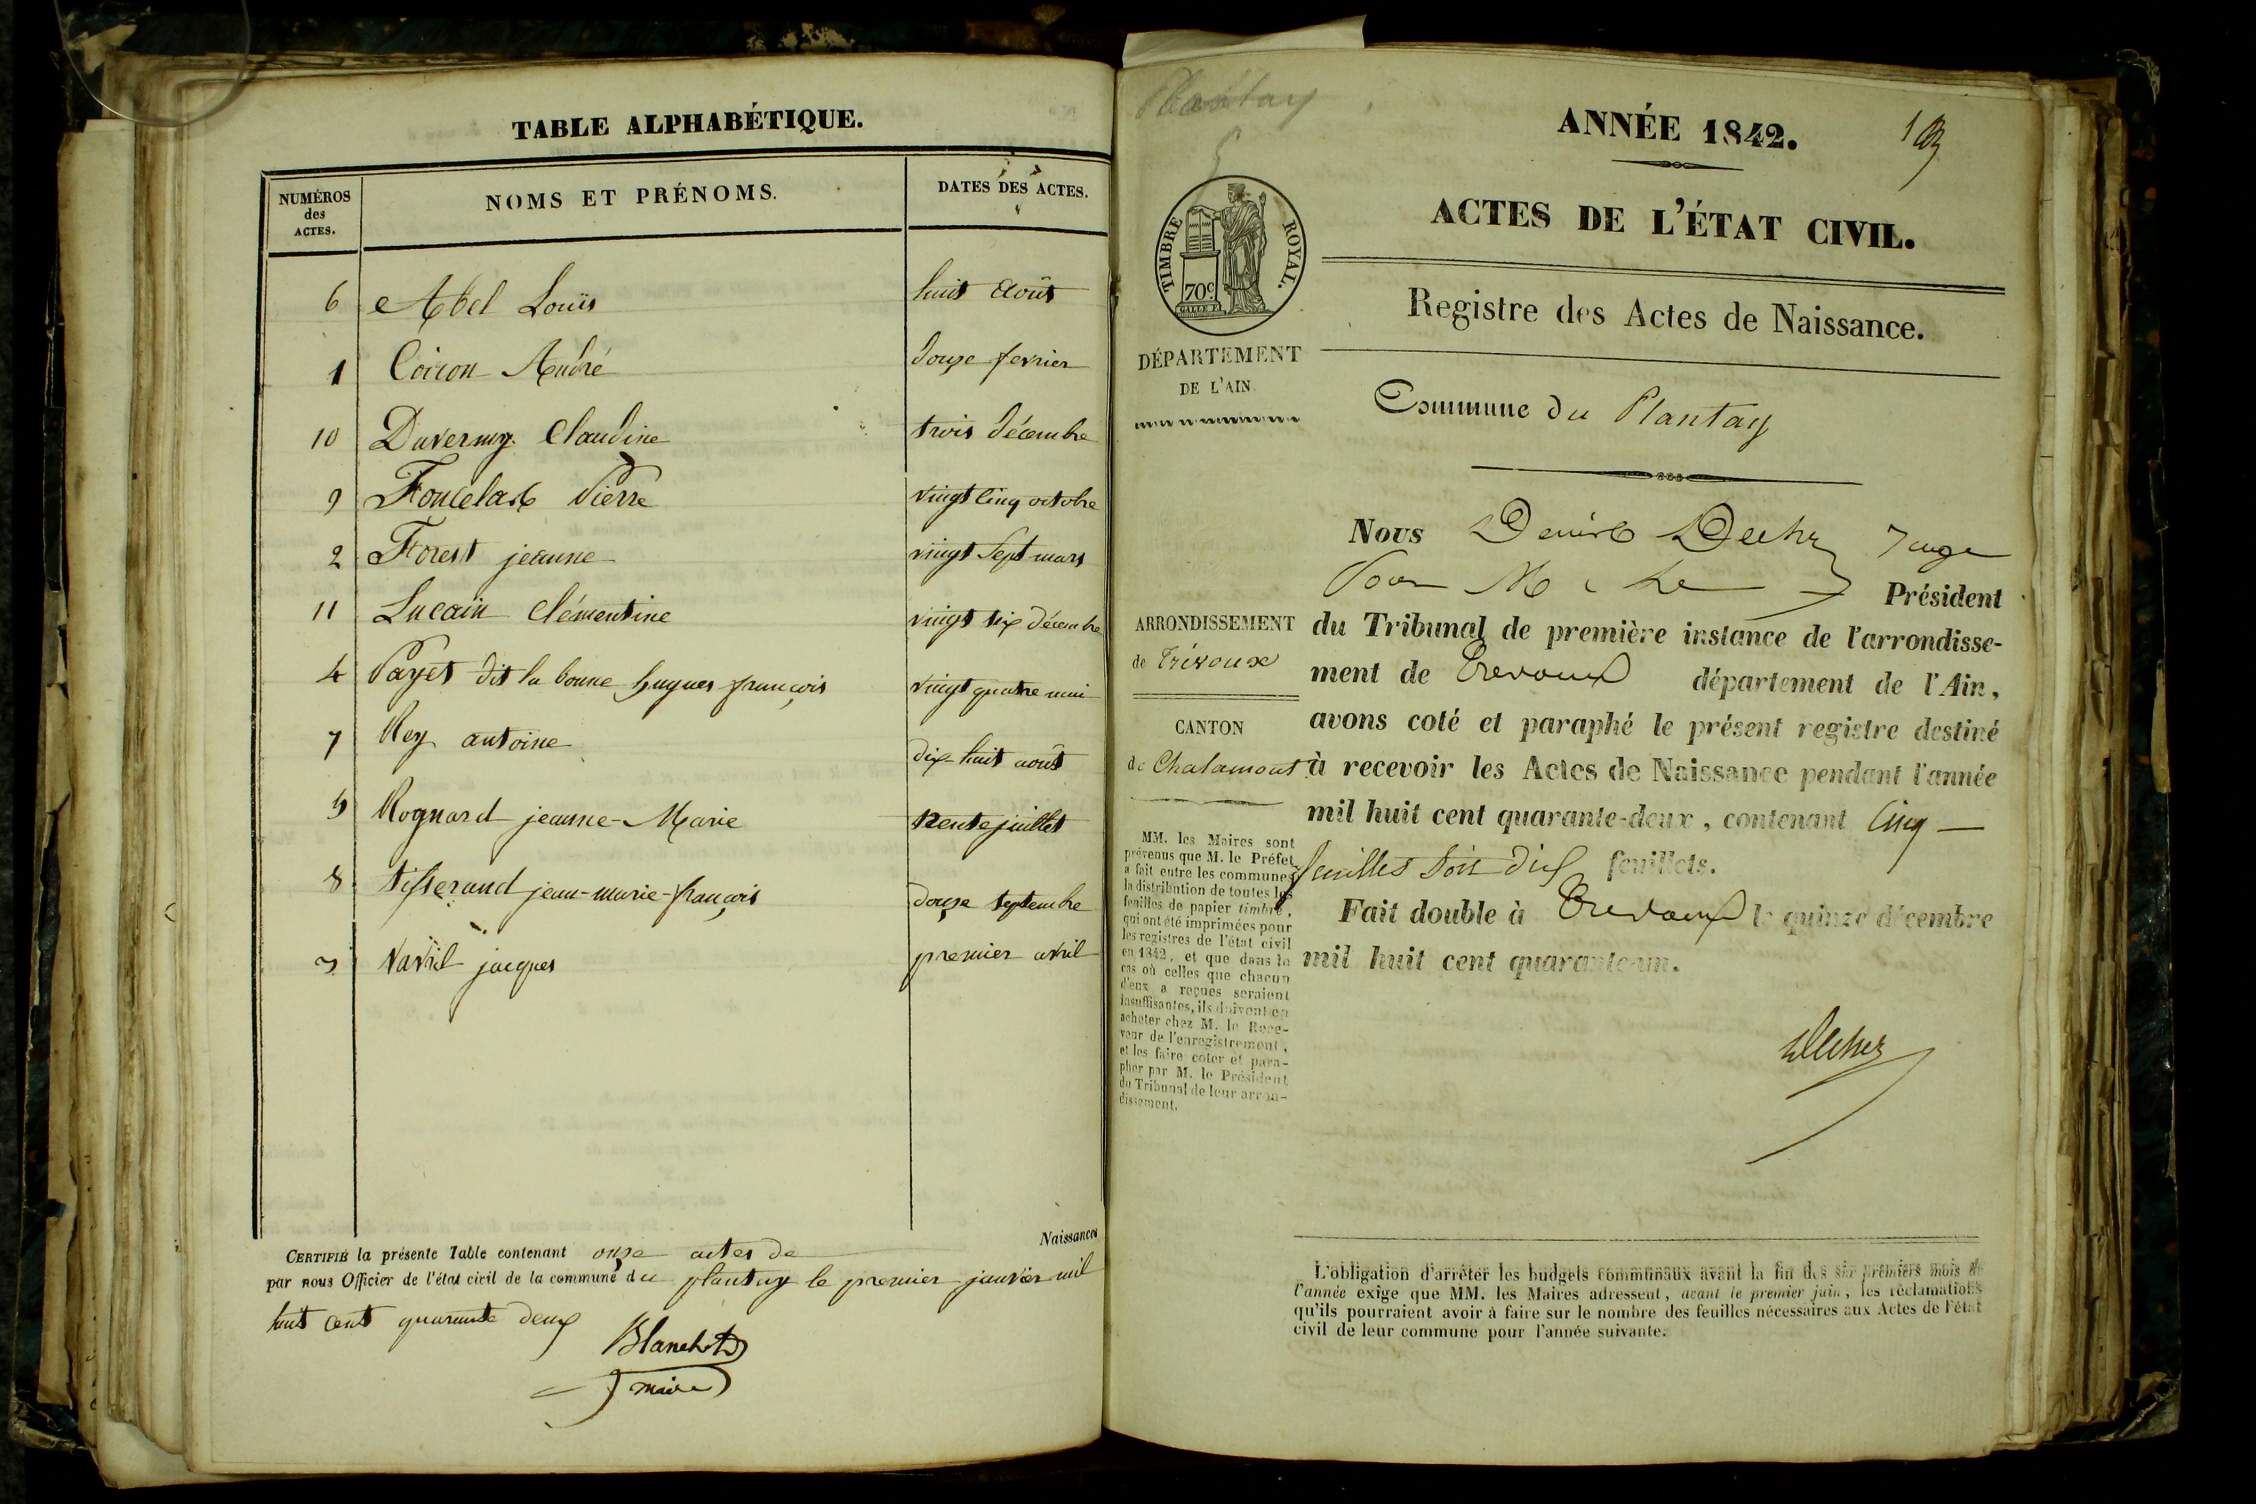 TABLE ALPHABÉTIQUE.
NUMÉROS des ACTES. NOMS ET PRÉNOMS. DATES DES ACTES.
6 Abel Louis huit août
1 Coiron André douze fevrier
10 Duvernay Claudine trois décembre
9 Pierre vingt cinq octobre
2 Forest jeanne vingt sept mars
11 Lucain Clémentine vingt six décembre
4 Payet dit la bonne hugues françois vingt quatre mai
7 Rey antoine dix-huit août
5 Rognard jeanne-Marie trente juillet
8 tisserand jean-marie-françois douze septembre
3 Navril jacques premier avril
CERTIFIÉ la présente Table contenant onze actes de Naissances
par nous Officier de l'état civil de la commune du plantay le premier janvier mil
huit cent quarante deux
Blanchot
maire
Plantay
ANNÉE 1842.
ACTES DE L'ÉTAT CIVIL.
TIMBRE ROYAL.
70c
Registre des Actes de Naissance.
DÉPARTEMENT
DE L'AIN
Commune du Plantay
Nous Juge
Président
ARRONDISSEMENT
de Trévoux
CANTON
de Chalamont
du Tribunal de première instance de l'arrondisse-
ment de Trevoux département de l'Ain,
avons coté et paraphé le présent registre destiné
à recevoir les Actes de Naissance pendant l'année
mil huit cent quarante-deux, contenant Cinq
feuilles soit dix feuillets.
Fait double à Trevoux le quinze décembre
mil huit cent quarante-un.
MM. les Maires sont
prévenus que M. le Préfet
a fait entre les communes
la distribution de toutes les
feuilles de papier timbré,
qui ont été imprimées pour
les registres de l'état civil
en 1842, et que dans le
cas où celles que chacun
d'eux a reçues seraient
insuffisantes, ils doivent en
acheter chez M. le Rece-
veur de l'enregistrement,
et les faire coter et para-
pher par M. le Président
du Tribunal de leur arron-
dissement.
L'obligation d'arrêter les budgets communaux avant la fin des six premiers mois de
l'année exige que MM. les Maires adressent, avant le premier juin, les réclamations
qu'ils pourraient avoir à faire sur le nombre des feuilles nécessaires aux Actes de l'état
civil de leur commune pour l'année suivante.